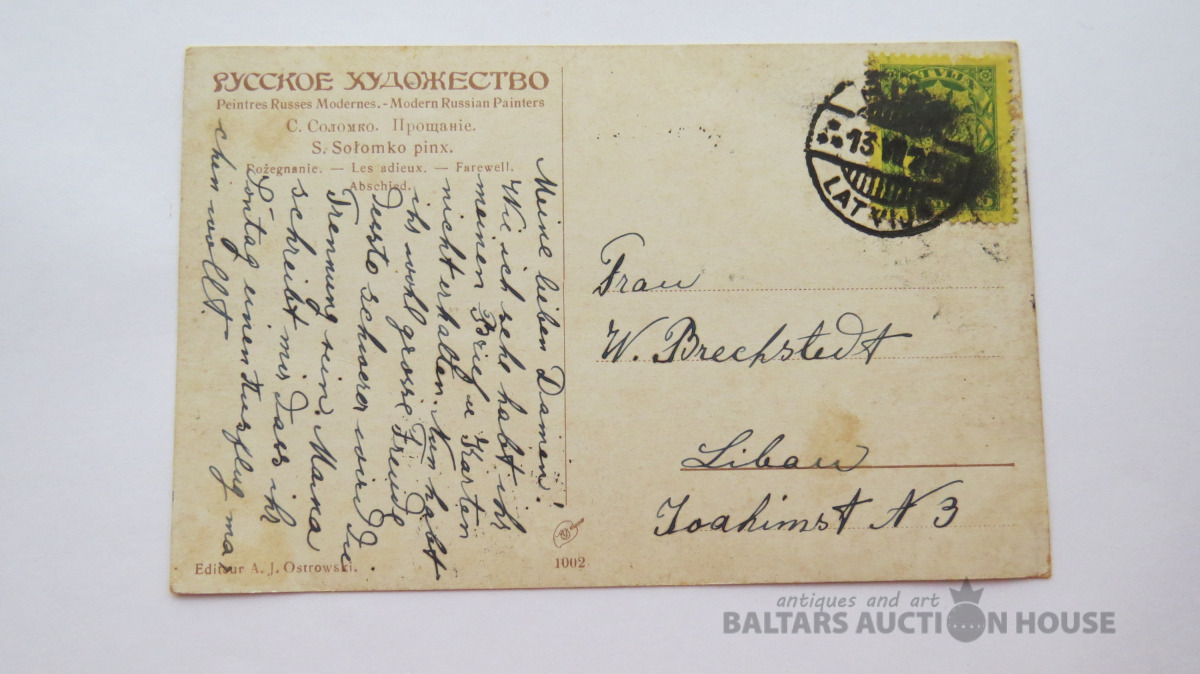 РУССКОЕ ХУДОЖЕСТВО
Peintres Russes Modernes. - Modern Russian Painters
С. Соломко. Прощаніе.
S. Sołomko pinx.
Pożegnanie. — Les adieux. — Farewell.
Abschied.
Meine lieben Damen!
Wie ich sehe habt ihr
meinen Brief u Karten
nicht erhalten. Nun habt
ihr wohl grosse Freude
desto schwerer wird die
Trennung sein. Mama
schreibt mir dass ihr
Sontag einen Ausflug ma
chen wollt.
Editeur A. J. Ostrowski.
1002
LATVIJA
13 VII
LATVIJ
Frau
W. Brechstedt
Libau
Joachimst N 3
antiques and art
BALTARS AUCTION HOUSE